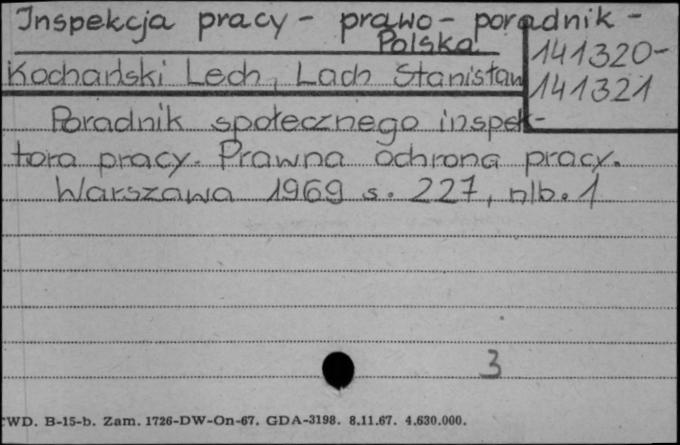 Inspekcja pracy - prawo - poradnik -
Polska
141320-
141321
Kochański Lech, Lach Stanisław
Poradnik społecznego inspek-
tora pracy. Prawna ochrona pracy.
Warszawa 1969 s. 227, nlb. 1
3
CWD. B-15-b. Zam. 1726-DW-On-67. GDA-3198. 8.11.67. 4.630.000.